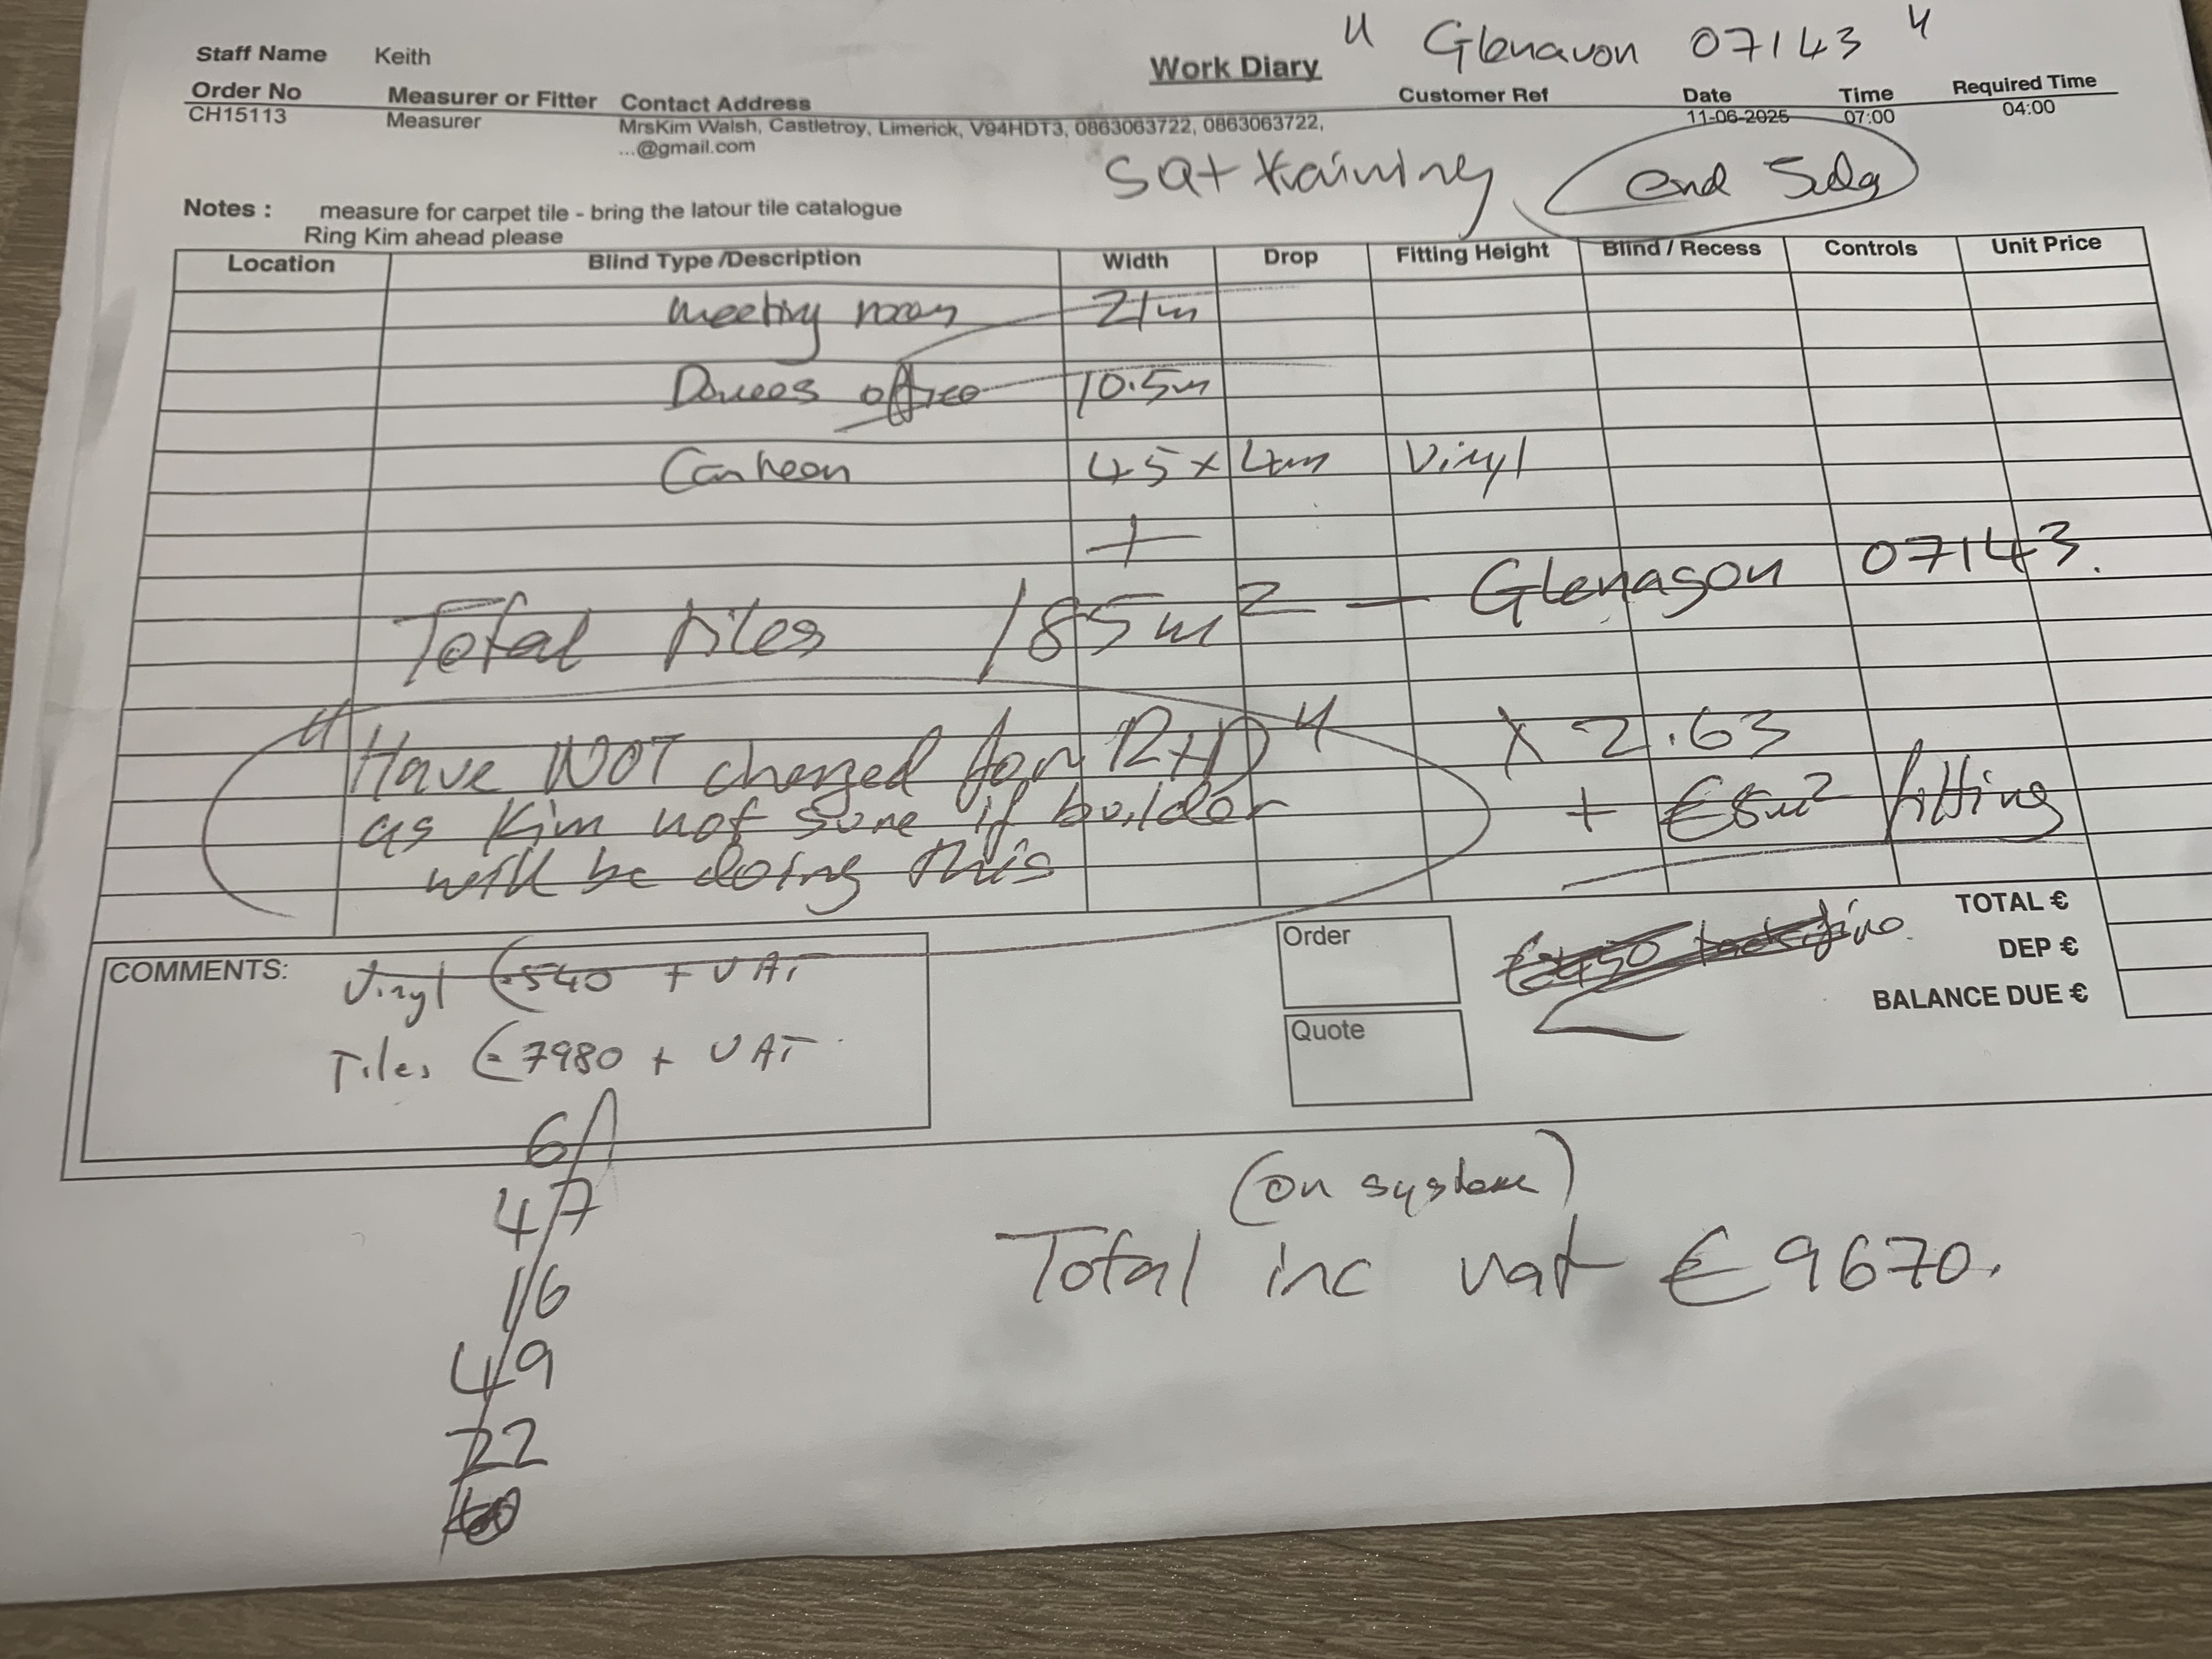 " Glenavon 07143 "
Staff Name Keith
Work Diary
Order No Measurer or Fitter Contact Address Customer Ref Date Time Required Time
CH15113 Measurer MrsKim Walsh, Castletroy, Limerick, V94HDT3, 0863063722, 0863063722, 11-06-2025 07:00 04:00
...@gmail.com
Sat training end July
Notes : measure for carpet tile - bring the latour tile catalogue
Ring Kim ahead please
Location Blind Type /Description Width Drop Fitting Height Blind / Recess Controls Unit Price
meeting room 21m
office 10.5m
Canteen 4.5 x 4m Vinyl
+
Total tiles 185m² - Glenagon 07143.
"Have NOT charged for R+D"
as Kim not sure if builder
will be doing this
x 2.63
+ €5m² fitting
TOTAL €
DEP €
BALANCE DUE €
Order
Quote
COMMENTS: Vinyl €540 + VAT
Tiles €7980 + VAT
61
47
16
49
22
(on system)
Total inc vat €9670.